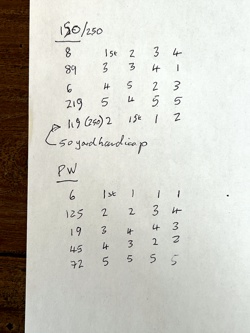 150/250
8 1st 2 3 4
89 3 3 4 1
6 4 5 2 3
219 5 4 5 5
119 (250) 2 1st 1 2
50 yard handicap
PW
6 1st 1 1 1
125 2 2 3 4
19 3 4 4 3
45 4 3 2 2
72 5 5 5 5